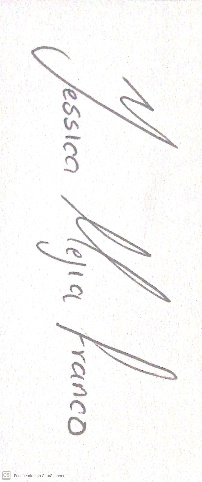 Jessica Mejia Franco